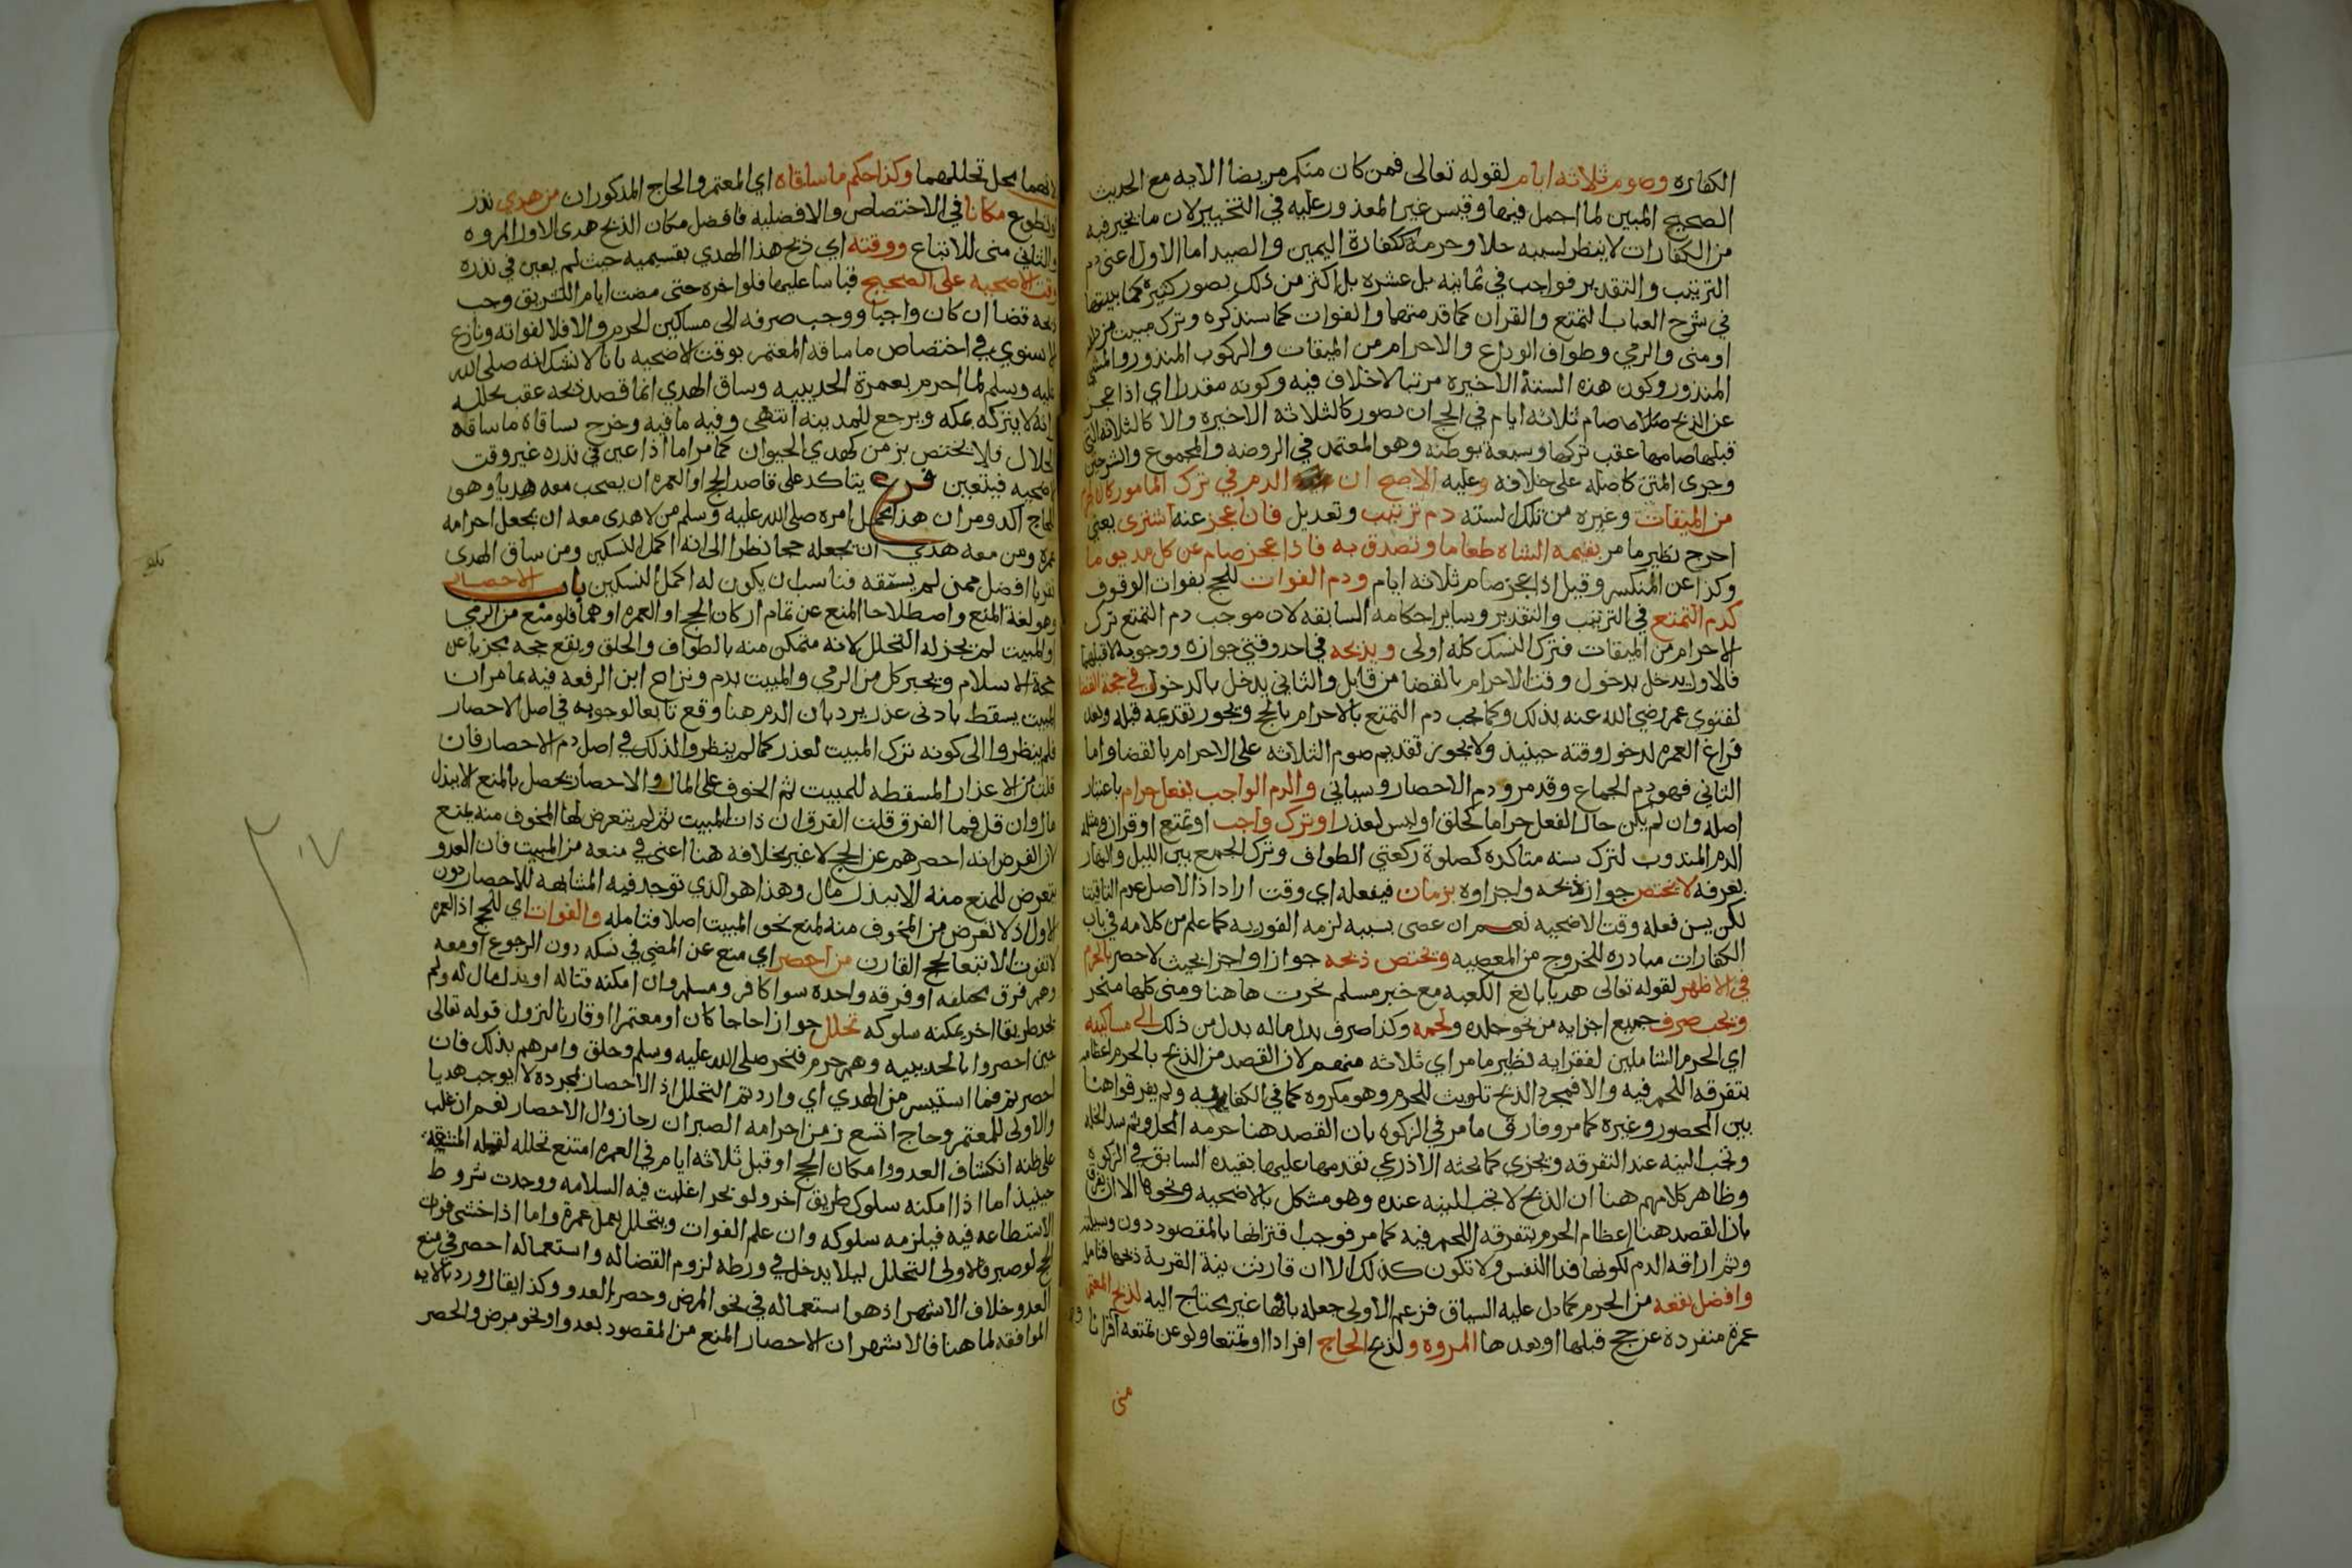 الكفاره وصوم ثلاثه ايام لقوله تعالى فمن كان منكم مريضا الايه مع الحديث
الصحيح المبين لما اجمل فيها وقيس غير المعذور عليه في التخيير لان ما يخير فيه
من الكفارات لا ينظر لسببه حلا وحرمة ككفارة اليمين والصيد اما الاول اعني دم
الترتيب والتقدير فواجب في ثمانيه بل عشره بل اكثر من ذلك بصور كثيرة كما بينتها
في شرح العباب التمتع والقران كما قدمتها والفوات كما سنذكره وترك مبيت مزدلفه
او منى والرمي وطواف الوداع والاحرام من الميقات والركوب المنذور والمشي
المنذور وكون هذه الستة الاخيره مرتبا لا خلاف فيه وكونه مقدرا اي اذا عجز
عن الذبح صام ثلاثه ايام في الحج ان تصور كالثلاثه الاخيره والا كالثلاثه التي
قبلها صامها عقب تركها وسبعة بوطنه وهو المعتمد في الروضه والمجموع والشرحين
وجرى المتن كاصله على خلافه وعليه الاصح ان الدم في ترك المامور كالاحرام
من الميقات وغيره من تلك لسته دم ترتيب وتعديل فان عجز عنه اشترى يعني
اخرج نظير ما مر بقيمه الشاه طعاما وتصدق به فاذا عجز صام عن كل مد يوما
وكذا عن المنكسر وقيل اذا عجز صام ثلاثه ايام ودم الفوات للحج بفوات الوقوف
كدم التمتع في الترتيب والتقدير وساير احكامه السابقه لان موجب دم التمتع ترك
الاحرام من الميقات فترك النسك كله اولى ويذبحه في احد وقتي جوازه ووجوبه لا قبلهما
فالاول يدخل بدخول وقت الاحرام بالقضا من قابل والثاني يدخل بالدخول في حجة القضا
لفتوى عمر رضي الله عنه بذلك وكما يجب دم التمتع بالاحرام بالحج ويجوز تقديمه قبله وبعد
فراغ العمره لدخول وقته حينيذ ولا يجوز تقديم صوم الثلاثه على الاحرام بالقضا واما
الثاني فهو دم الجماع وقد مر ودم الاحصار وسياتي والدم الواجب بفعل حرام باعتبار
اصله وان لم يكن حال الفعل حراما كحلق او لبس لعذر او ترك واجب او تمتع او قران ومثله
الدم المندوب لترك سنه متاكده كصلوة ركعتي الطواف وترك الجمع بين الليل والنهار
بعرفه لا يختص جواز ذبحه واجزاوه بزمان فيفعله اي وقت اراد اذ الاصل عدم التاقيت
لكن يسن فعله وقت الاضحيه نعم ان عصى بسببه لزمه الفوريه كما علم من كلامه في باب
الكفارات مبادره للخروج من المعصيه ويختص ذبحه جوازا واجزا بحيث لا حصر بالحرم
في الاظهر لقوله تعالى هديا بالغ الكعبه مع خبر مسلم نحرت هاهنا ومنى كلها منحر
ويجب صرف جميع اجزايه من نحو جلده ولحمه وكذا صرف بدل ماله بدل من ذلك الى مساكينه
اي الحرم الشاملين لفقرايه نظير ما مر اي ثلاثه منهم لان القصد من الذبح بالحرم اعظامه
بتفرقه اللحم فيه والا فمجرد الذبح تلويث للحرم وهو مكروه كما في الكفايه ولم يفرقوا هنا
بين المحصور وغيره كما مر وفارق ما مر في الزكوه بان القصد هنا حرمه المحل وثم سد الخله
وتجب النيه عند التفرقه ويجزي كما بحثه الاذرعي تقدمها عليها بقيده السابق في الزكوه
وظاهر كلامهم هنا ان الذبح لا تجب النيه عنده وهو مشكل بالاضحيه ونحوها الا ان يفرق
بان القصد هنا اعظام الحرم بتفرقه اللحم فيه كما مر فوجب اقترانها بالمقصود دون وسيلته
وثم اراقه الدم لكونها فدا النفس ولا تكون كذلك الا ان قارنت نية القربة ذبحها فتامله
وافضل بقعه من الحرم كما دل عليه السياق فزعم الاولى جعله بانها غير يحتاج اليه لذبح المعتمر
عمرة منفردة عن حج قبلها او بعدها المروه ولذبح الحاج افرادا او تمتعا ولو عن تمتعه او قرانا
منى
لانهما محل تحللهما وكذا حكم ما ساقاه اي المعتمر والحاج المذكوران من هدي نذر
وتطوع مكانا في الاختصاص والافضليه فافضل مكان الذبح هدى الاول المروه
والثاني منى للاتباع ووقته اي ذبح هذا الهدي بقسيميه حيث لم يعين في نذره
وقت الاضحيه على الصحيح قياسا عليها فلو اخره حتى مضت ايام التشريق وجب
ذبحه قضا ان كان واجبا ووجب صرفه الى مساكين الحرم والا فلا لفواته ونازع
الاسنوي في اختصاص ما ساقه المعتمر بوقت الاضحيه بانا لا نشك انه صلى الله
عليه وسلم لما احرم بعمرة الحديبيه وساق الهدي انما قصد ذبحه عقب تحلله
وانه لا يتركه بمكه ويرجع للمدينه انتهى وفيه ما فيه وخرج بساقاه ما ساقه
الحلال فلا يختص بزمن كهدي الجبران كما مر اما اذا عين في نذره غير وقت
الاضحيه فيتعين فرع يتاكد على قاصد الحج او العمره ان يصحب معه هديا وهو
للحاج اكد ومر ان هذا محمل امره صلى الله عليه وسلم من لا هدى معه ان يجعل احرامه
عمرة ومن معه هدي ان يجعله حجا نظرا الى انه اكمل النسكين ومن ساق الهدى
تقربا افضل ممن لم يسقه فناسب ان يكون له اكمل النسكين باب الاحصار
وهو لغة المنع واصطلاحا المنع عن تمام اركان الحج او العمره او هما فلو منع من الرمي
والمبيت لم يجز له التحلل لانه متمكن منه بالطواف والحلق ويقع حجه مجزيا عن
حجة الاسلام ويجبر كل من الرمي والمبيت بدم ونزاع ابن الرفعه فيه بما مر ان
المبيت يسقط بادنى عذر يرد بان الدم هنا وقع تابعا لوجوبه في اصل الاحصار
فلم ينظروا الى كونه ترك المبيت لعذر كما لم ينظروا لذلك في اصل دم الاحصار فان
قلت من الاعذار المسقطه للمبيت ثم الخوف على المال والاحصار يحصل بالمنع الا ببذل
مال وان قل فما الفرق قلت الفرق ان ذات المبيت ثم لم يتعرض لها المخوف منه بمنع
لان الفرض انه احصرهم عن الحج لا غير بخلافه هنا اعني في منعه من المبيت فان العدو
يتعرض للمنع منه الا ببذل مال وهذا هو الذي توجد فيه المشابهه للاحصار دون
الاول اذ لا تعرض من المخوف منه لمنع نحو المبيت اصلا فتامله والفوات اي للحج اذ العمره
لا تفوت الا تبعا لحج القارن من احصر اي منع عن المضي في نسكه دون الرجوع او معه
وهم فرق مختلفه او فرقه واحده سوا كافر ومسلم وان امكنه قتاله او بذل مال له ولم
يجد طريقا اخر يمكنه سلوكه تحلل جوازا حاجا كان او معتمرا او قارنا لنزول قوله تعالى
حين احصروا بالحديبيه وهم حرم فنحر صلى الله عليه وسلم وحلق وامرهم بذلك فان
احصرتم فما استيسر من الهدي اي واردتم التحلل اذ الاحصار بمجرده لا يوجب هديا
والاولى للمعتمر وحاج اتسع زمن احرامه الصبر ان رجا زوال الاحصار نعم ان غلب
على ظنه انكشاف العدو وامكان الحج او قبل ثلاثه ايام في العمره امتنع تحلله لقله المشقه
حينيذ اما اذا امكنه سلوك طريق اخر ولو بحرا غلبت فيه السلامه ووجدت شروط
الاستطاعه فيه فيلزمه سلوكه وان علم الفوات ويتحلل بعمل عمرة واما اذا خشى فوات
الحج لو صبر فالاولى التحلل ليلا يدخل في ورطه لزوم القضا له واستعماله احصر في منع
العدو خلاف الاشهر اذ هو استعماله في نحو المرض وحصر بالعدو وكذا يقال ورد بالايه
الموافقه لما هنا فالاشهر ان الاحصار المنع من المقصود بعدو او نحو مرض والحصر
بلغ
٢٠٧